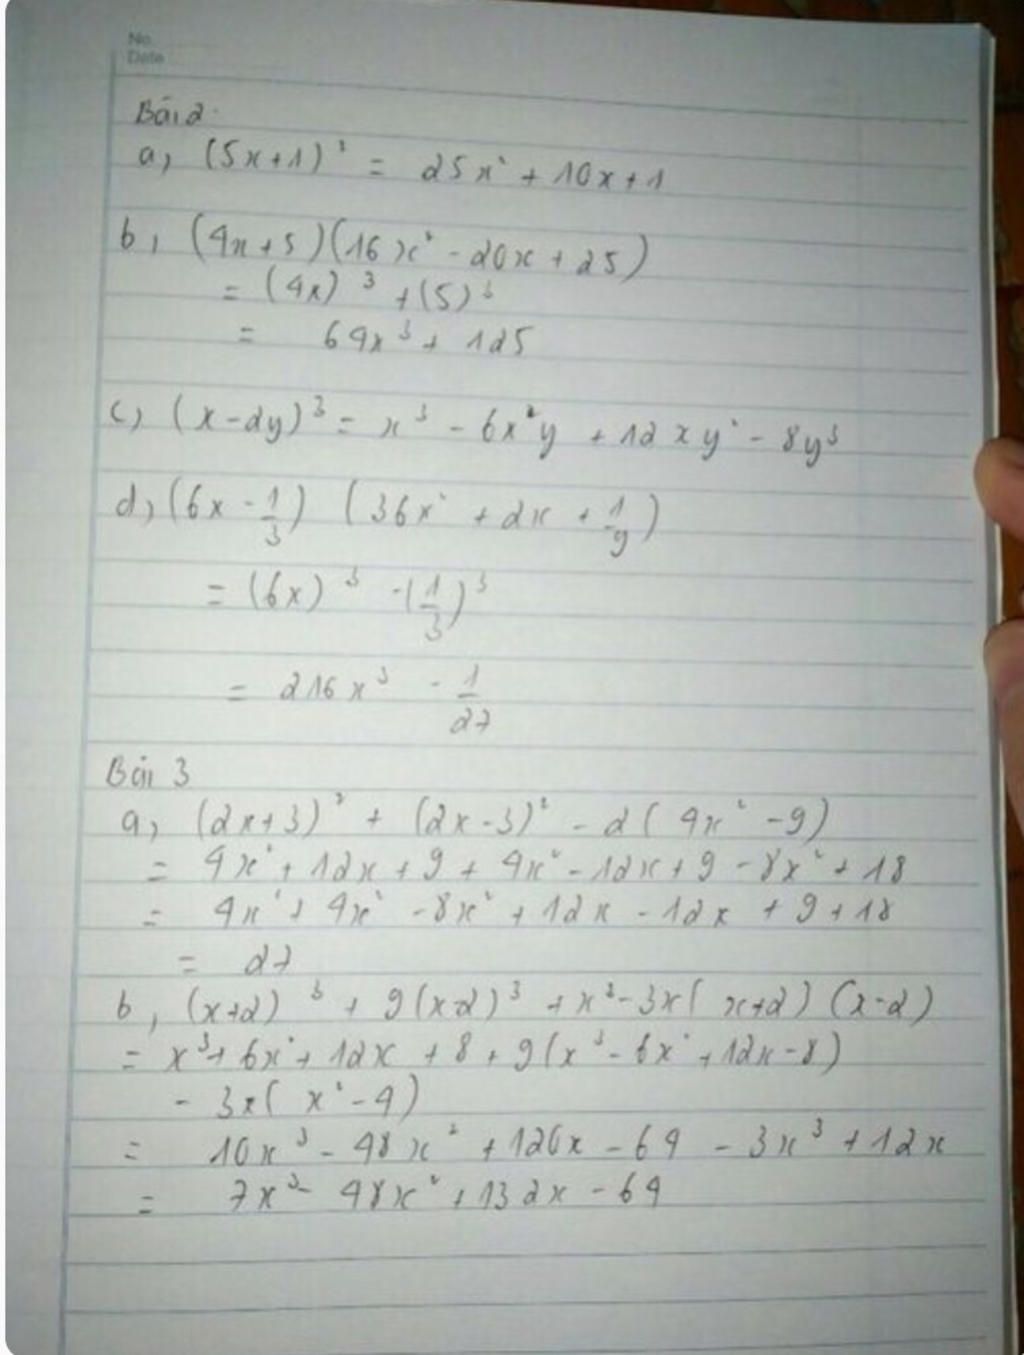 No.
Date
Bài 2
a, (5x+1)² = 25x² + 10x + 1
b, (4x+5)(16x² - 20x + 25)
= (4x)³ + (5)³
= 64x³ + 125
c, (x-2y)³ = x³ - 6x²y + 12xy² - 8y³
d, (6x - 1/3) (36x² + 2x + 1/9)
= (6x)³ - (1/3)³
= 216x³ - 1/27
Bài 3
a, (2x+3)² + (2x-3)² - 2(4x² - 9)
= 4x² + 12x + 9 + 4x² - 12x + 9 - 8x² + 18
= 4x² + 4x² - 8x² + 12x - 12x + 9 + 18
= 27
b, (x+2)³ + 9(x-2)³ + x³ - 3x(x+2)(x-2)
= x³ + 6x² + 12x + 8 + 9(x³ - 6x² + 12x - 8)
- 3x(x² - 4)
= 10x³ - 48x² + 120x - 64 - 3x³ + 12x
= 7x³ - 48x² + 132x - 64